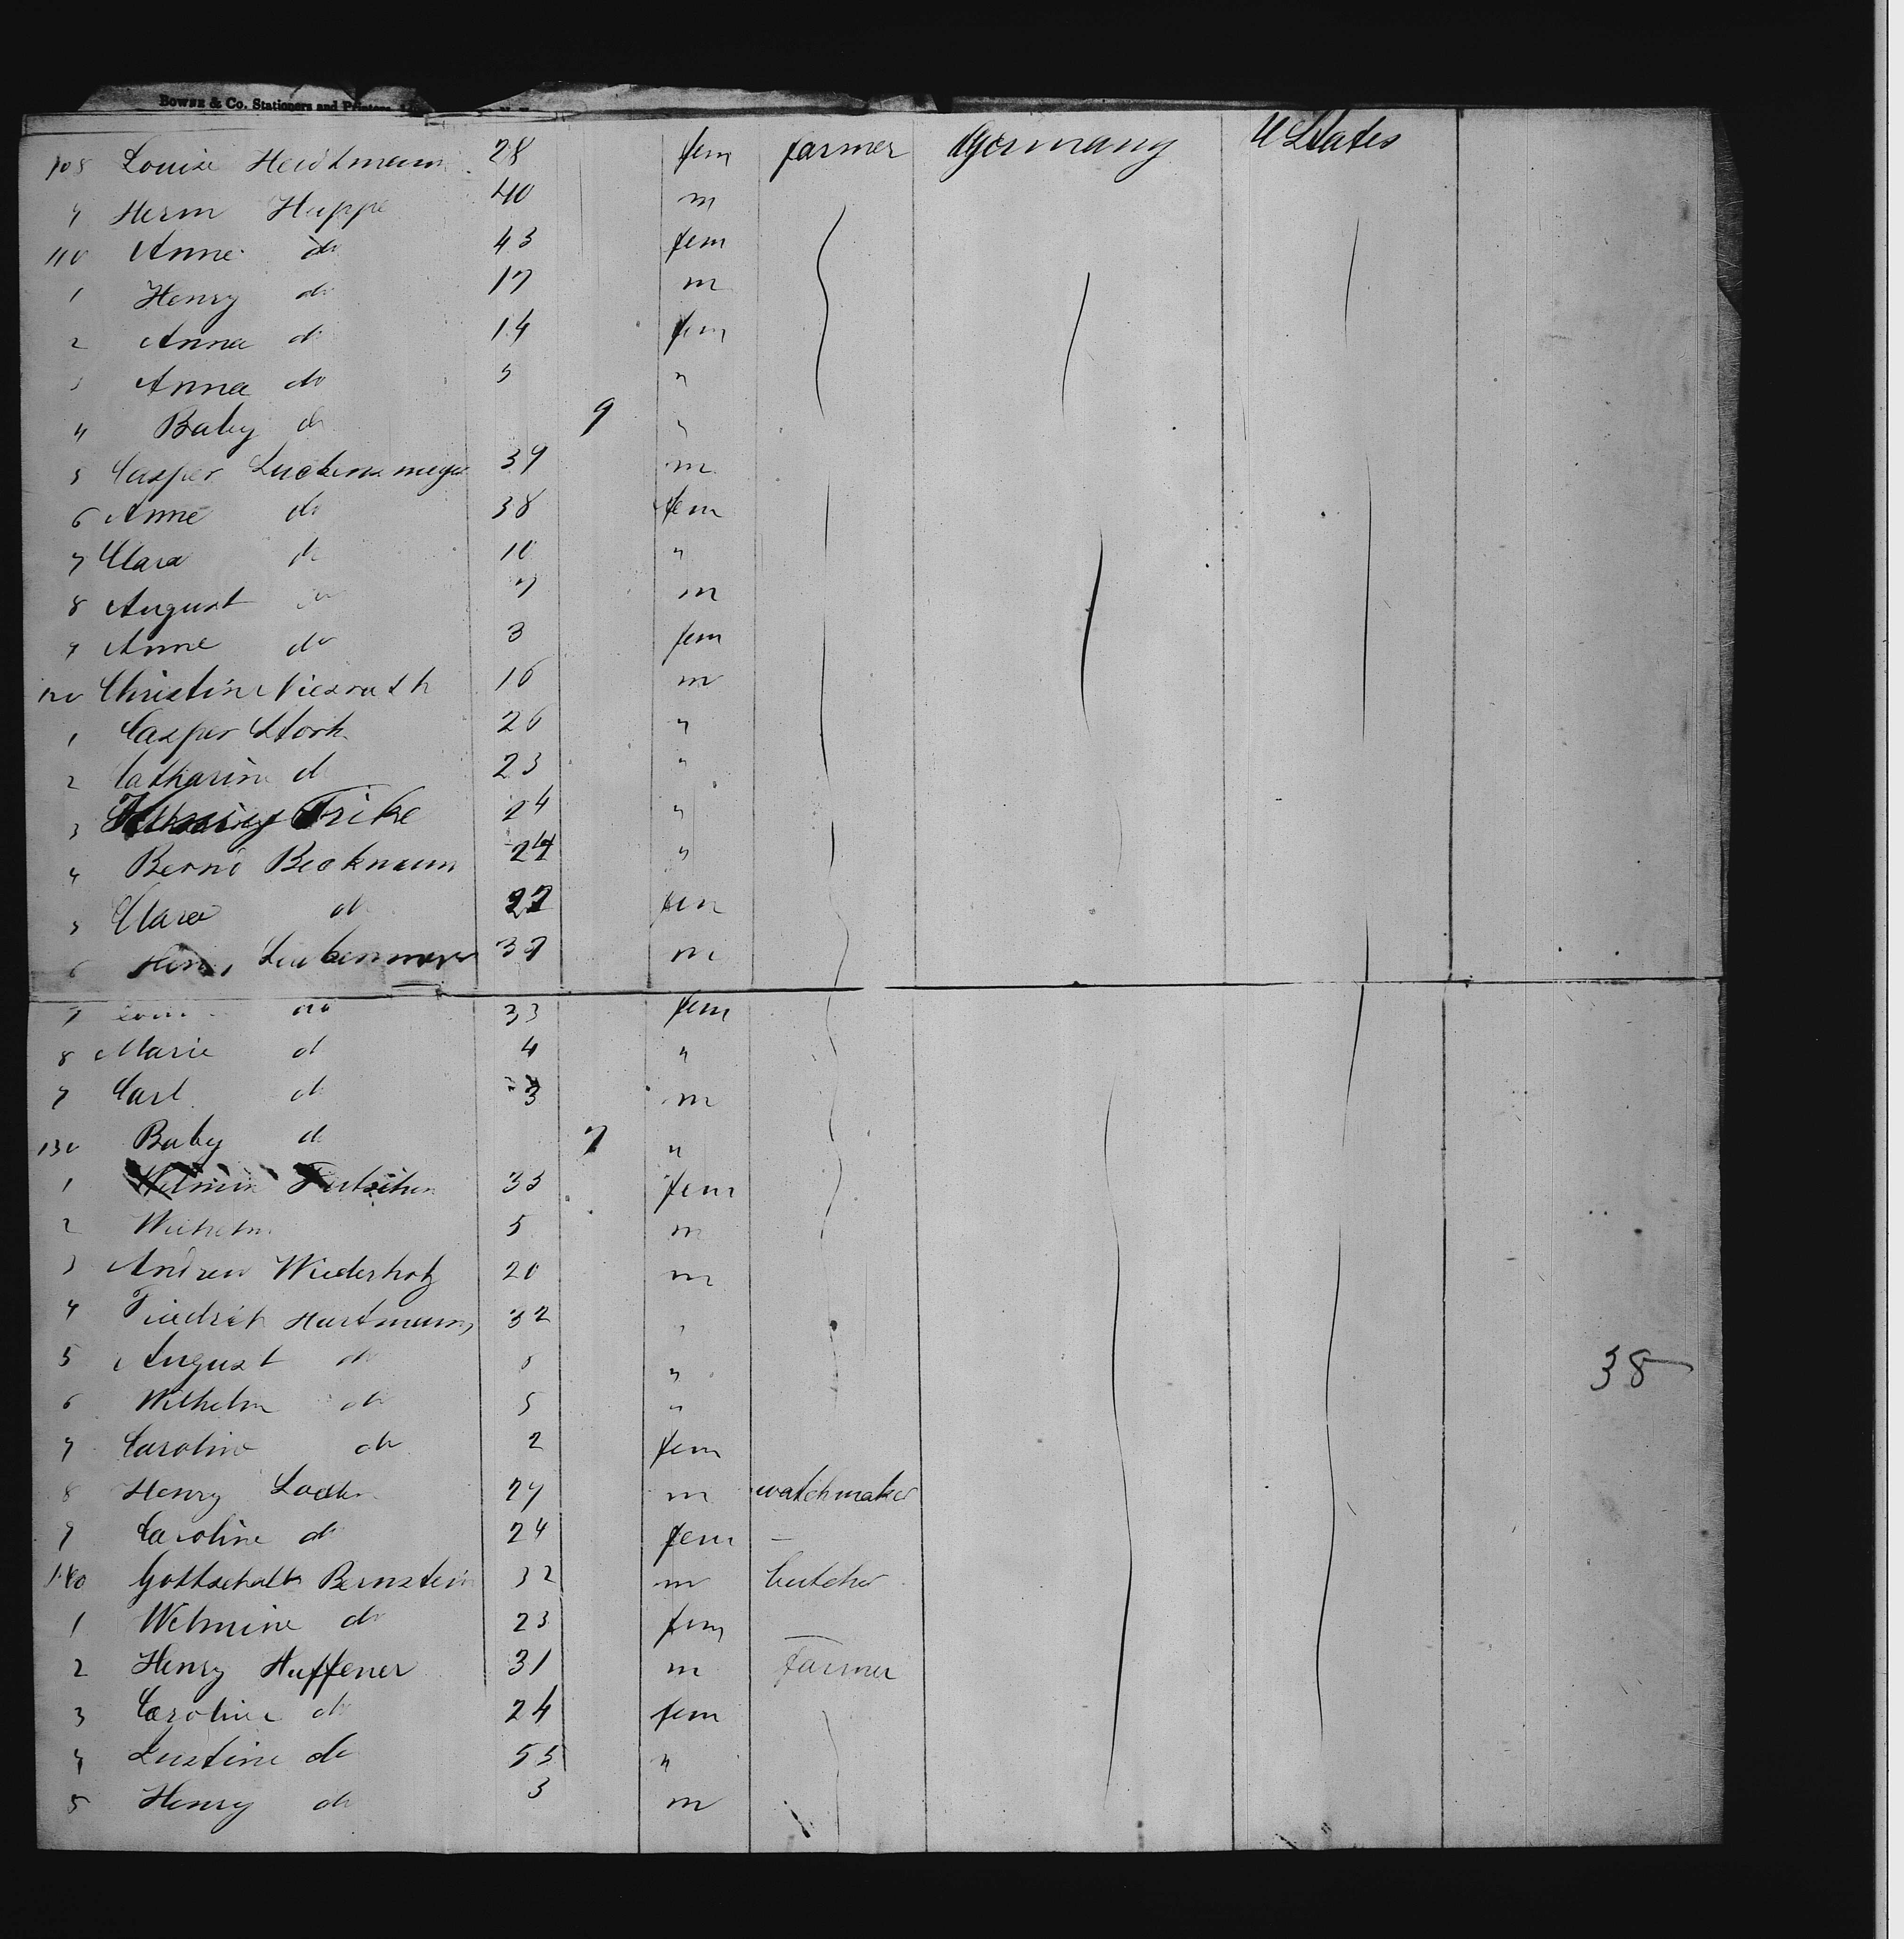 Bowne & Co. Stationers and Printers
108 Louise Heidtmann 28 fem farmer Germany U States
9 Herm Huppe 40 m
110 Anne do 43 fem
1 Henry do 17 m
2 Anna do 14 fem
3 Anna do 5 "
4 Baby do 9 "
5 Casper 39 m
6 Anne do 38 fem
7 Clara do 10 "
8 August do 7 m
9 Anne do 3 fem
120 Christine 16 m
1 Casper Stork 26 "
2 Catharine do 23 "
3 Frike 24 "
4 Bernd Beckmann "
5 Clara do fem
6 m
7 do 33 fem
8 Marie do 4 "
9 Carl do 3 m
130 Baby do 7 "
1 33 fem
2 Wilhelm 5 m
3 Andreu Wiederholz 20 m
4 Friedrich Hartmann 32 "
5 August do "
6 Wilhelm do 5 "
7 Caroline do 2 fem
8 Henry m watchmaker
9 Caroline do 24 fem —
140 Gottschalk Bernstein 32 m butcher
1 Welmine do 23 fem —
2 Henry Huffener 31 m Farmer
3 Caroline do 24 fem
4 Lustine do 55 "
5 Henry do 3 m
38